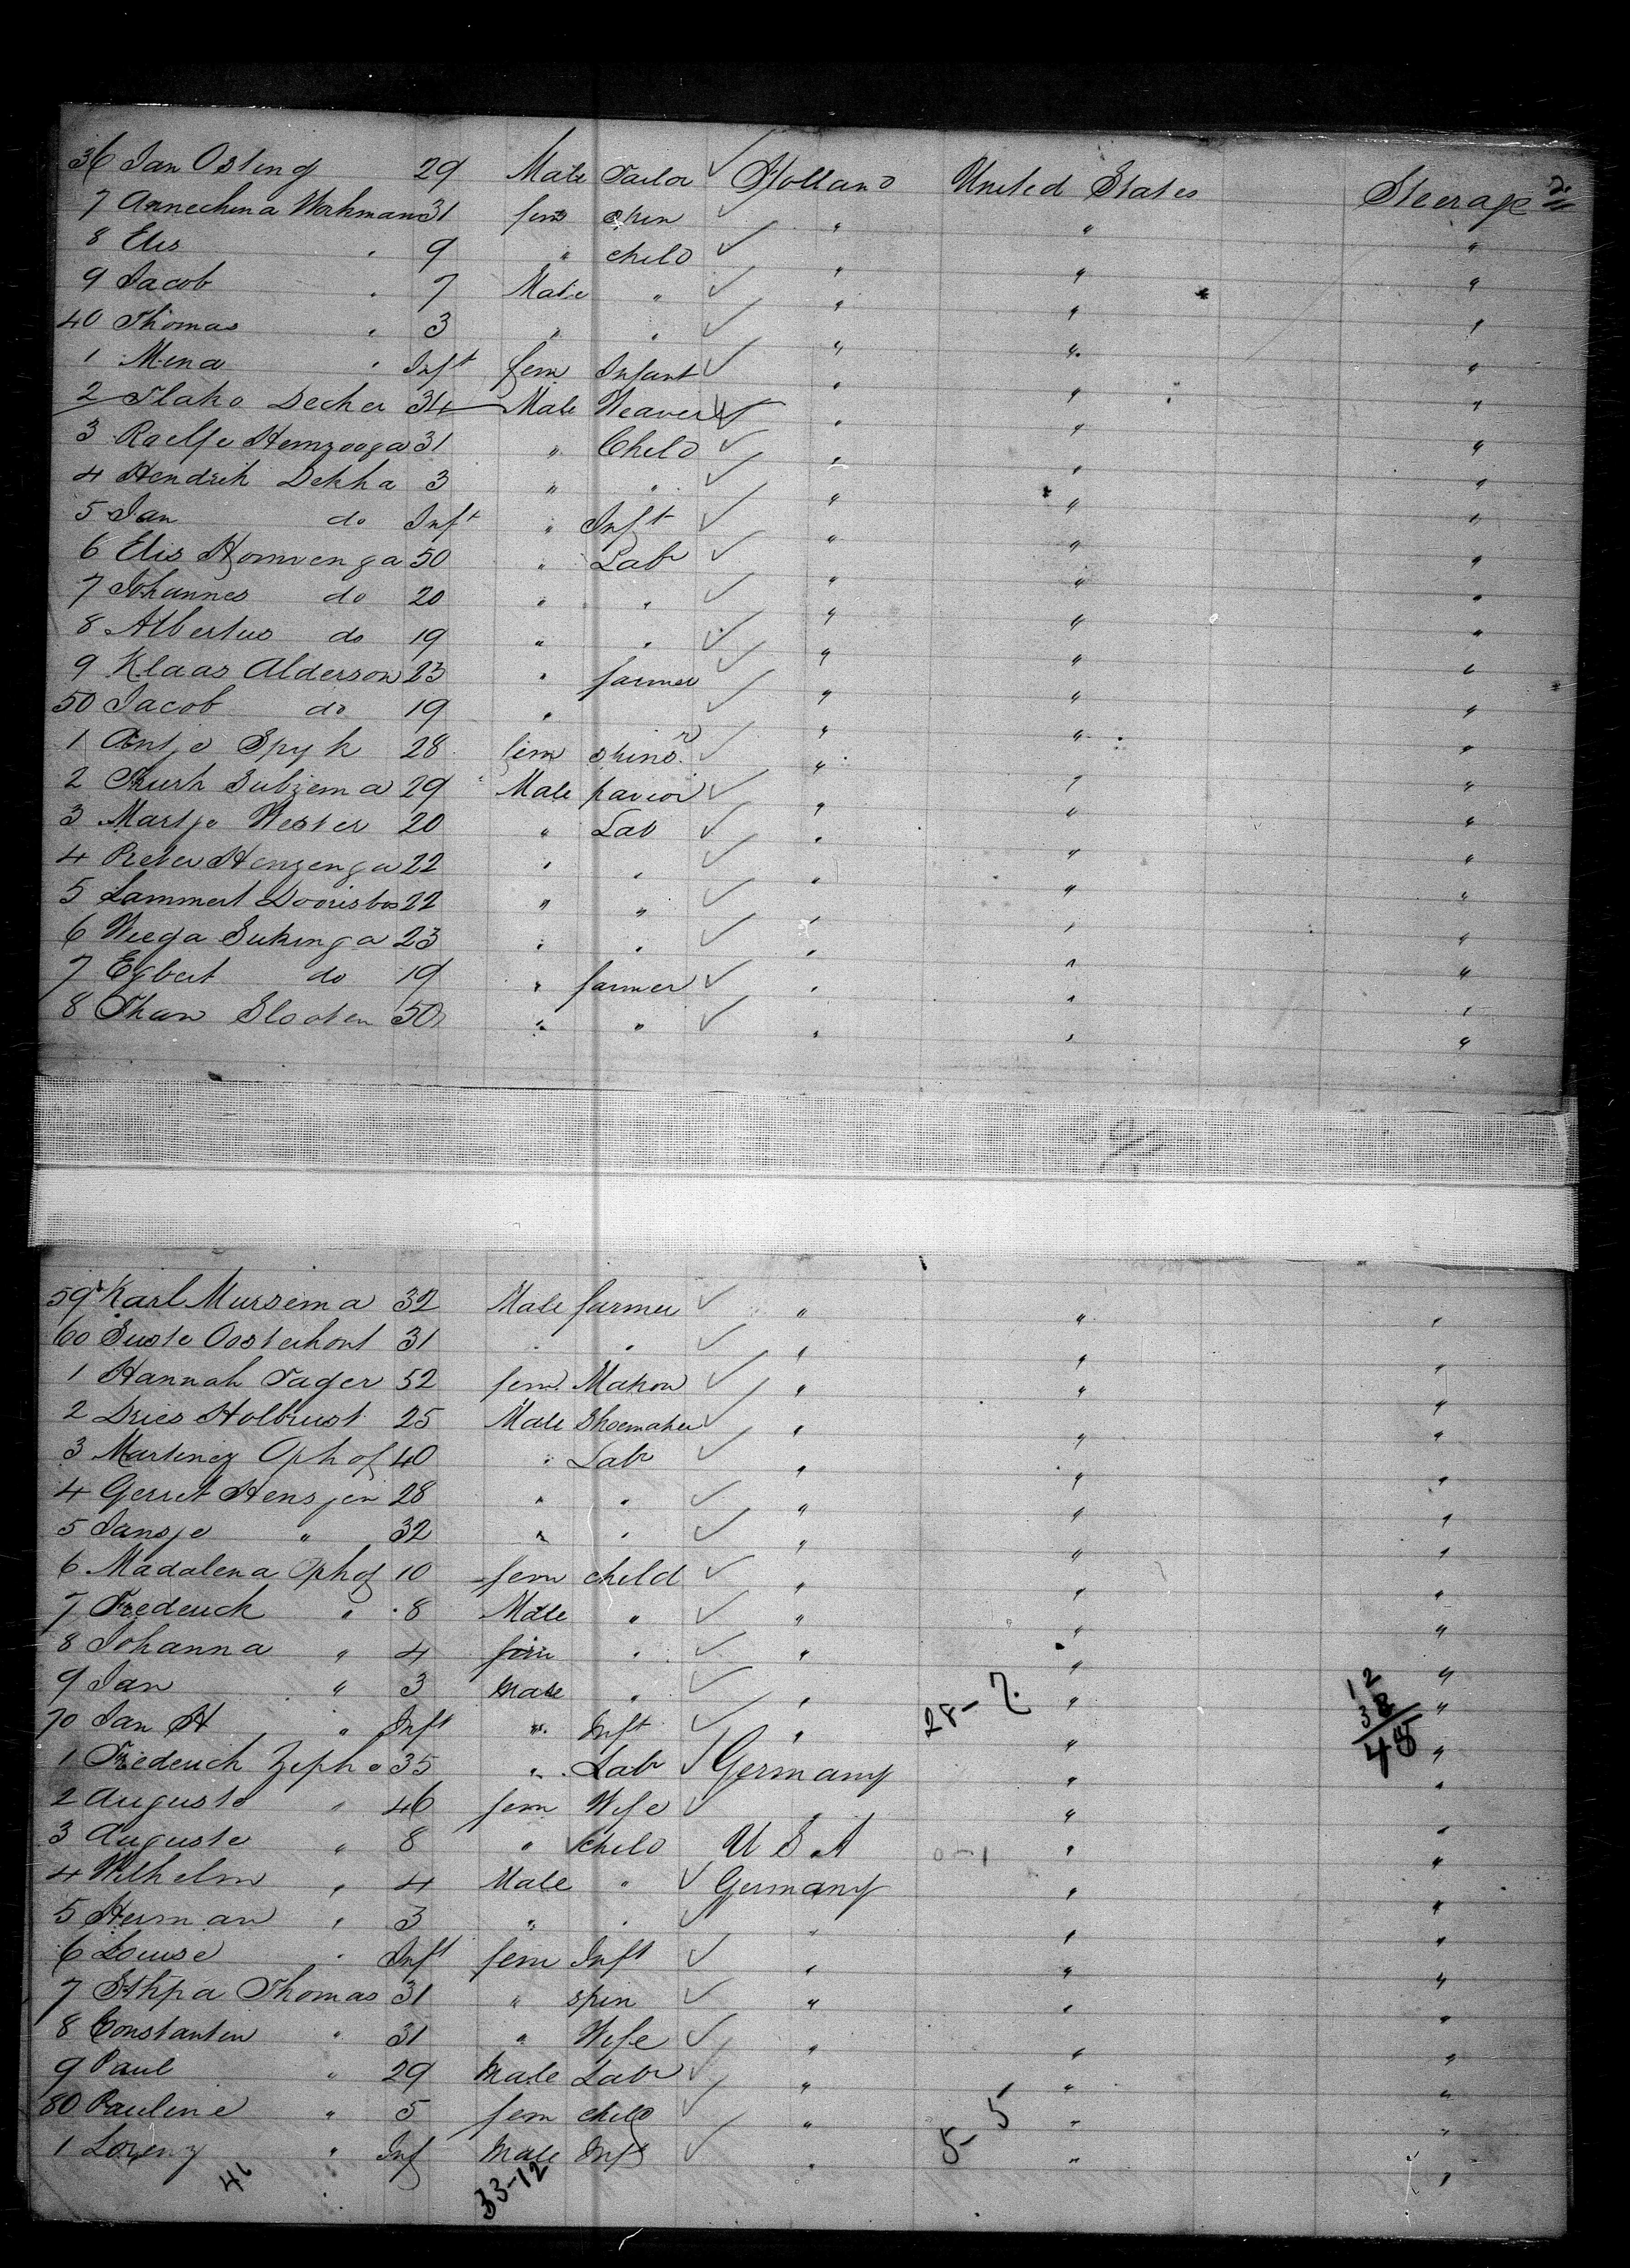 36 Jan Osting 29 Male Tailor ✓ Holland United States Steerage 2
7 Annechina Workman 31 fem spin ✓ " " "
8 Elis " 9 " child ✓ " " "
9 Jacob " 7 Male " ✓ " " "
40 Thomas " 3 " " ✓ " " "
1 Mena " Inft fem Infant ✓ " " "
2 Flako Decker 34 Male Weaver ✓ " " "
3 Roelfe 31 " Child ✓ " " "
4 Hendrik Dekka 3 " " ✓ " " "
5 Jan do Inft " Inft ✓ " " "
6 Elis 50 " Lab ✓ " " "
7 Johannes do 20 " " ✓ " " "
8 Albertus do 19 " " ✓ " " "
9 Klaas Alderson 23 " farmer ✓ " " "
50 Jacob do 19 " ✓ " " "
1 Antje Spyk 28 fem spins ✓ " " "
2 Subzema 29 Male pavior ✓ " " "
3 Martje Wester 20 " Lab ✓ " " "
4 Pieter Henzenga 22 " " ✓ " " "
5 Lammert Doorisbos 22 " " ✓ " " "
6 Wiega Sukinga 23 " " ✓ " " "
7 Egbert do 19 " farmer ✓ " " "
8 Slooten 50 " " ✓ " " "
59 Karl Mursema 32 Male farmer ✓ " " "
60 Oosterhout 31 " " ✓ " " "
1 Hannah Tager 52 fem ✓ " " "
2 Dries Holbrust 25 Male Shoemaker ✓ " " "
3 Ophof 40 " Lab ✓ " " "
4 Gerret Hensjen 28 " " ✓ " " "
5 Jansje " 32 " " ✓ " " "
6 Madalena Ophof 10 fem child ✓ " " "
7 Frederich " 8 Male " ✓ " " "
8 Johanna " 4 fem " ✓ " " "
9 Jan " 3 Male " ✓ " 28-7 " 12 "
70 Jan H " Inft " Inft ✓ " " 38 "
1 Friederich Zepho 35 " Lab ✓ Germany " 48 "
2 Auguste " 46 fem Wife ✓ " " "
3 Auguste " 8 " child U S A 0-1 " "
4 Wilhelm " 4 Male " ✓ Germany " "
5 Herman " 3 " " ✓ " " "
6 Louise " Inft fem Inft ✓ " " "
7 Thomas 31 " spin ✓ " " "
8 Constantin " 31 " Wife ✓ " " "
9 Paul " 29 Male Lab ✓ " " "
80 Pauline " 5 fem child ✓ " " "
1 Lorenz " Inf Male Inft ✓ " 5-5 " "
33-12